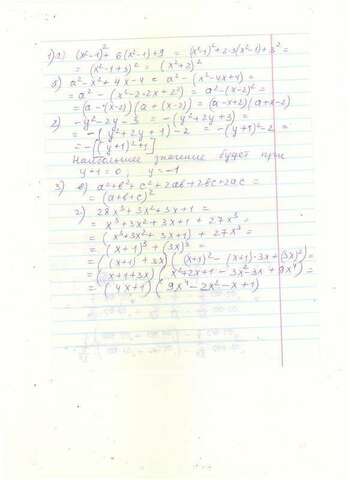 1) а) (x²-1)² + 6(x²-1)+9 = (x²-1)²+2·3(x²-1)+3² =
= (x²-1+3)² = (x²+2)²
a²-x²+4x-4 = a²-(x²-4x+4) =
= a²-(x²-2·2x+2²) = a²-(x-2)² =
= (a-(x-2))(a+(x-2)) = (a-x+2)(a+x-2)
2) -y²-2y-3 = -(y²+2y+3) =
= -(y²+2y+1)-2 = -(y+1)²-2 =
= -[(y+1)²+
Наибольшее значение будет при
y+1=0; y=-1
3) в) a²+b²+c²+2ab+2bc+2ac =
= (a+b+c)²
2) 28x³+3x²+3x+1 =
= x³+3x²+3x+1+27x³ =
= (x³+3x²+3x+1)+27x³ =
= (x+1)³+(3x)³ =
= ((x+1)+3x)((x+1)²-(x+1)·3x+(3x)²) =
= (x+1+3x)(x²+2x+1-3x²-3x+9x⁴) =
= (4x+1)(9x⁴-2x²-x+1)